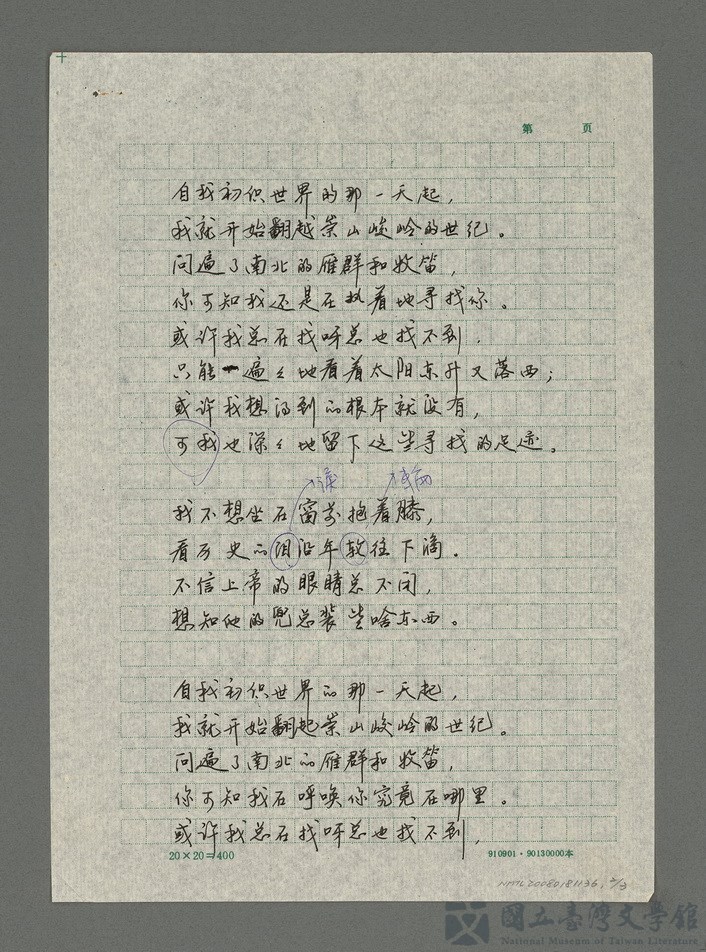 第 页
自我初识世界的那一天起，
我就开始翻越崇山峻岭的世纪。
问遍了南北的雁群和牧笛，
你可知我还是在执着地寻找你。
或许我总在找呀总也找不到，
只能一遍々地看着太阳东升又落西；
或许我想得到的根本就没有，
可我也深々地留下这些寻找的足迹。
我不想坐在窗前抱着膝，
看历史的泪沿年轮往下滴。
不信上帝的眼睛总不闭，
想知他的兜总装些啥东西。
自我初识世界的那一天起，
我就开始翻起崇山峻岭的世纪。
问遍了南北的雁群和牧笛，
你可知我在呼唤你究竟在哪里。
或许我总在找呀总也找不到，
20×20=400
910901·90130000本
NMTL20080181136, 2/3
國立臺灣文學館
National Museum of Taiwan Literature